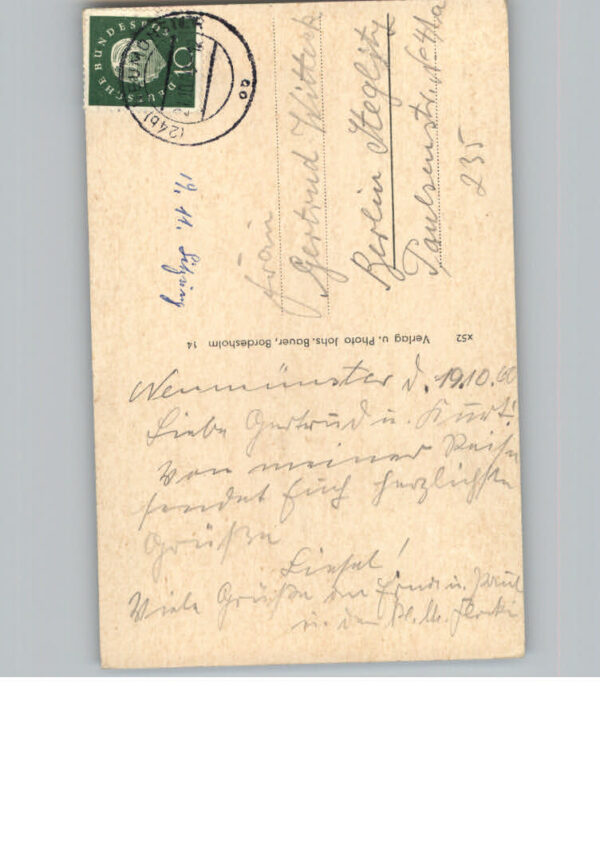 DEUTSCHE BUNDESPOST
10
(24b) NEUMÜNSTER
ao
Frau
Gertrud
Berlin Steglitz
Paulsenstr.
235
19. 11.
x52 Verlag u. Photo Johs. Bauer, Bordesholm 14
Neumünster d. 19.10.60
Liebe Gertrud u. Kurt!
Von meiner Reise
sendet Euch herzlichste
Grüße
Liesel!
Viele Grüße an Erna u. Paul
u. den